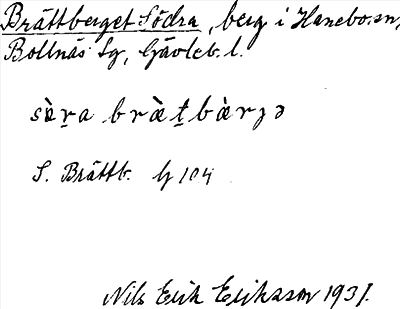 Brättberget Södra, berg i Hanebo sn,
Bollnäs Sg, Gävleb. l.
sò̀ṟa bræ̀ṯbàrjə
S. Brättb. G 104
Nils Erik Eriksson 1931.